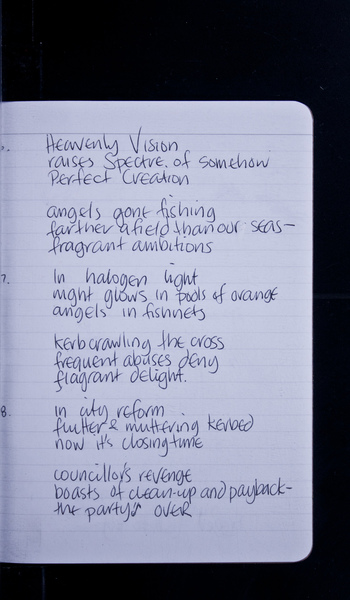 Heavenly Vision
raises Spectre of somehow
Perfect Creation
angels gone fishing
farther afield than our seas-
fragrant ambitions
7. In halogen light
night glows in pools of orange
angels in fishnets
kerbcrawling the cross
frequent abuses deny
flagrant delight.
8. in city reform
flutter & muttering kerbed
now it's closing time
councillors revenge
boasts of clean-up and payback-
the party's OVER